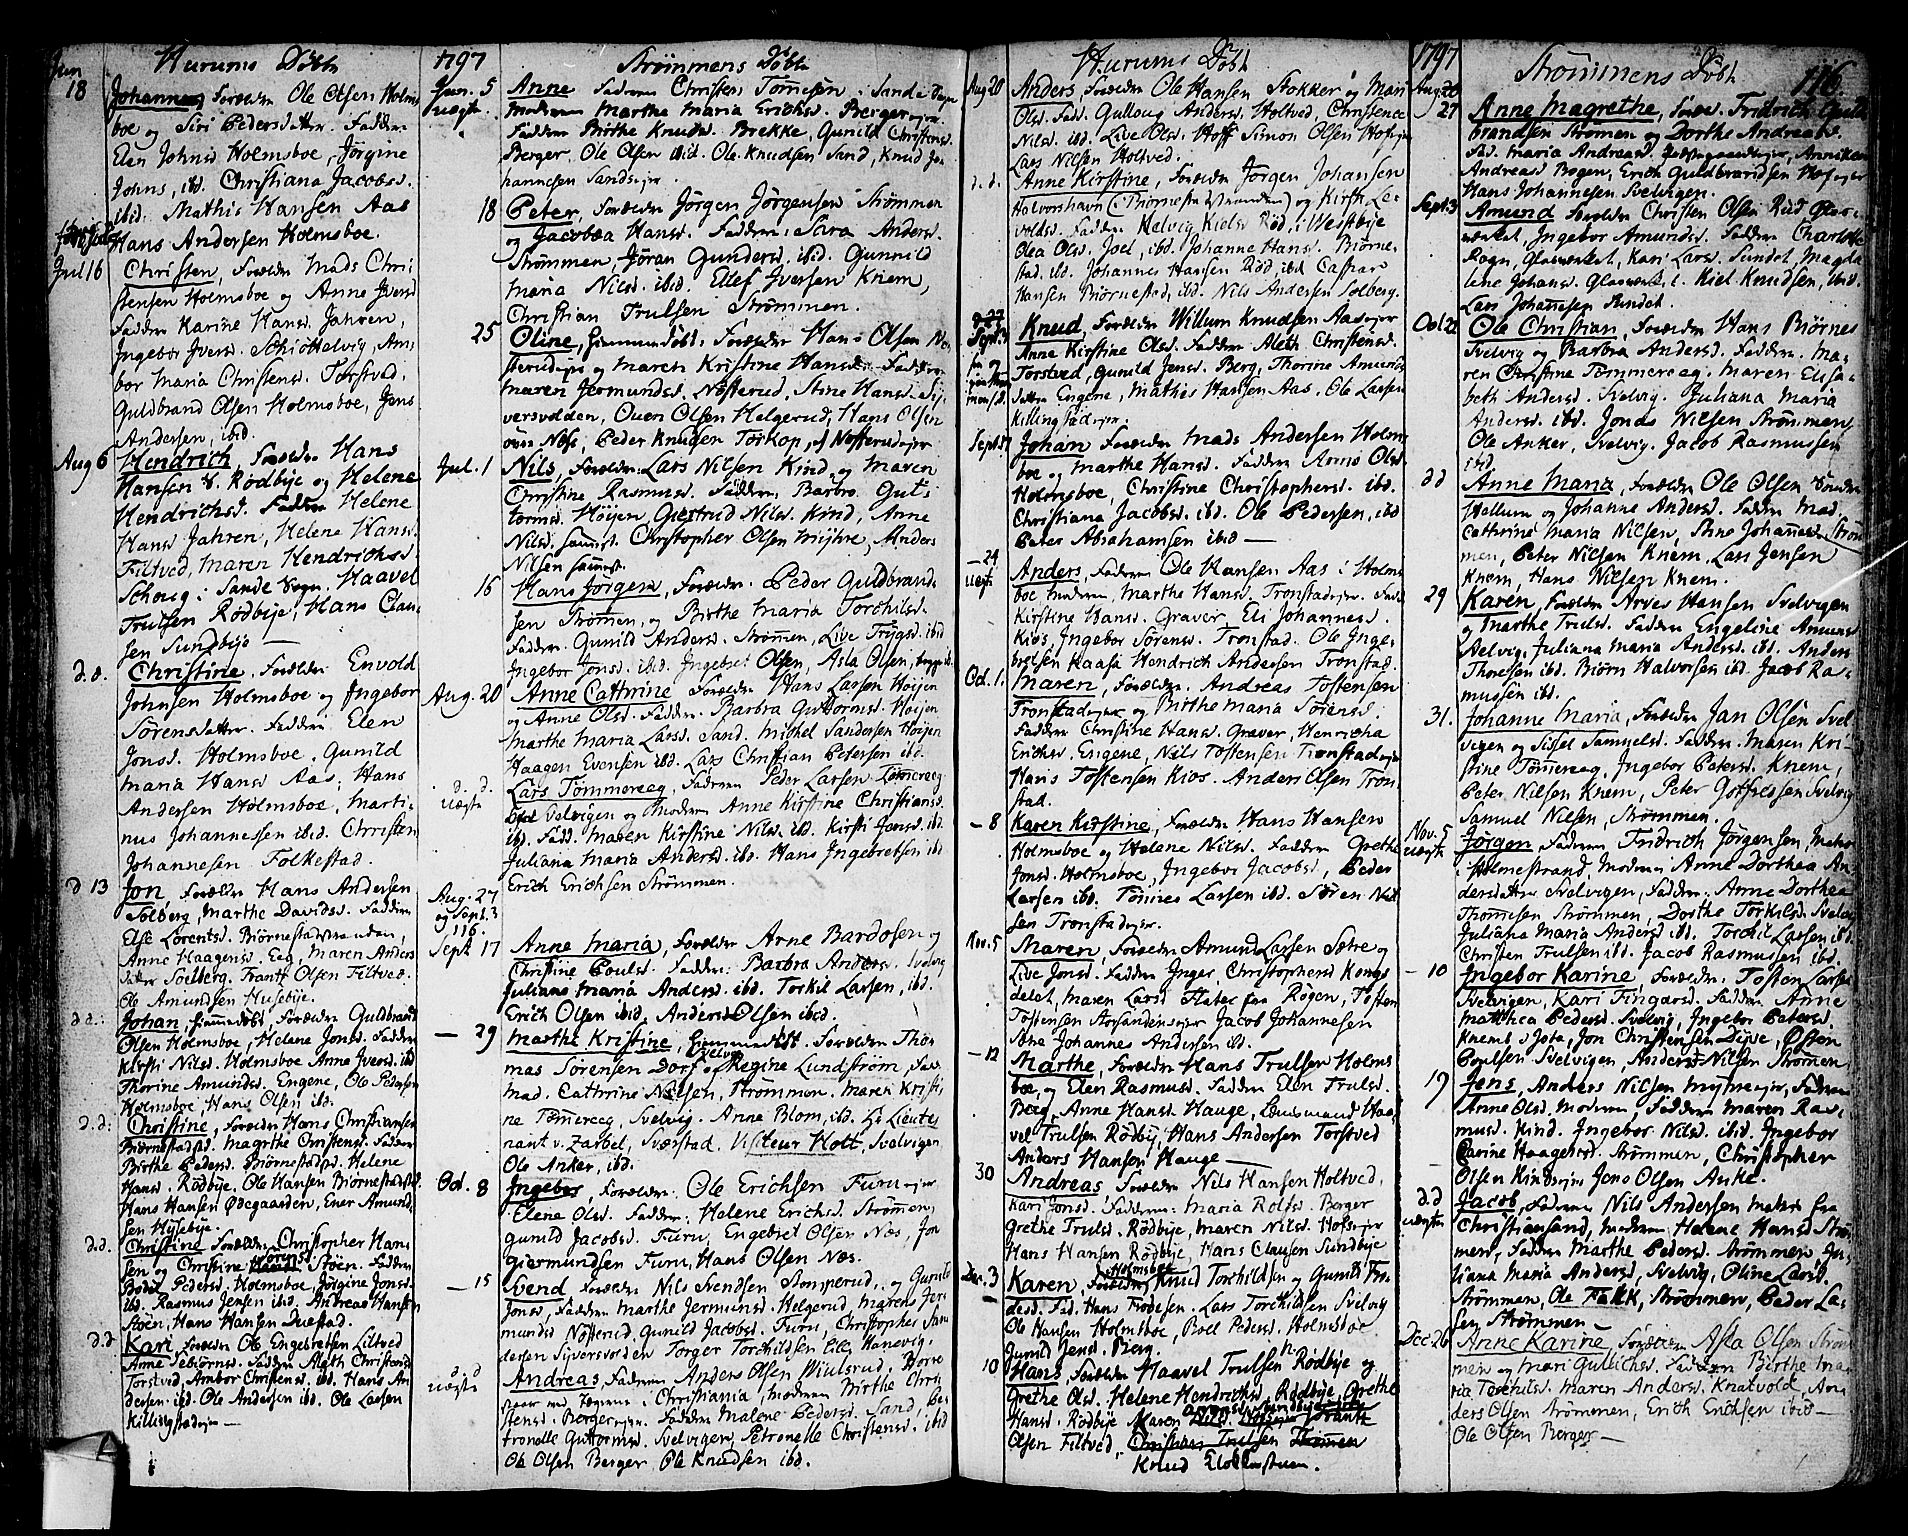 Hurums Døbte
Jun
18
Johannes, Forældre Ole Olsen Holms
boe og Siri Pedersdatter. Faddere
Elen Johnsd. Holmsboe, Jørgine
Johns, ibd. Christiana Jacobsd.
ibid. Mathis Hansen Aas
Hans Andersen Holmsboe.
Jul 16
Christen, Forældre Mads Chri-
stensen Holmsboe og Anne Iversd
Faddere Karine Hansd. Jahren,
Ingebor Iversd. Schiøttelvig, Am-
bor Maria Christensd. Torstved,
Guldbrand Olsen Holmsboe, Jens
Andersen, ibid.
Aug 6
Hendrich, Forældre Hans
Hansen Rødbye og Helene
Hendrichsd. Faddere Helene
Hansd Jahren, Helene Hansd.
Filtved, Maren Hendrichsd
Schoug i Sande Sogn, Haavel
Trulsen Rødbye, Hans Clau-
sen Sundbye
d. d.
Christine, Forældre Envold
Johnsen Holmsboe og Ingebor
Sørensdatter. Faddere Elen
Jonsd. Holmsboe, Gunild
Maria Hansd Aas, Hans
Andersen Holmsboe, Marti-
nus Johannessen ibid. Christen
Johannesen Folkestad.
d 13
Jon, Forældre Hans Andersen
Solberg, Marthe Davidsd. Faddere
Else Lorentsd. Biørnestadstranden,
Anne Haagensd. Eag, Maren Anders
datter Soelberg. Frantz Olsen Filtved.
Ole Amundsen Husebye.
d d.
Johan, hiemmedøbt, Forældre Guldbrand
Olsen Holmsboe, Helene Jonsd. Faddere
Kirsti Nilsd. Holmsboe Anne Iversd. ibd
Thorine Amundsd. Engene, Ole Pedersen
Holmsboe, Hans Olsen ibd.
d. d.
Christine, Forældre Hans Christiansen
Biørnestad, Magrthe Christensd. Faddere
Birthe Pedersd. Biørnestad, Helene
Hansd. Rødbye, Ole Hansen Biørnestad
Hans Hansen Ødegaarden, Ener Amund-
sen Hysebye.
d. d.
Christine Forældre Christopher Han-
sen og Christine Støen. Faddere
Bodil Pedersd. Holmsboe, Jørgine Jonsd.
ibd. Rasmus Jensen ibd. Andreas Hansen
Støen, Hans Hansen Duestad.
d. d.
Kari, Forældre Ole Engebretsen Liltved
Anne Asbiørnsd. Faddere Aleth Christensd
Torstved, Ambor Christensd. ibd. Hans An-
dersen ibd. Ole Andersen ibd. Ole Larsen
Killingstadejer

1797
Strømmens Døbte
Jun. 5
uægte
Anne Faderen Christen Tømesen i Sande Sogn
Moderen Marthe Maria Erichsd. Bergerejer
Faddere Birthe Knudsd. Brekke, Gunild Christensd.
Berger, Ole Olsen ibid. Ole Knudsen Sand, Knud Jo
hannesen Sandsejer.
18
Peter, Forældre Jørgen Jørgensen Strømmen
og Jacobæa Hansd. Faddere: Sara Andersd.
Strømmen, Jøran Gundersd. ibid. Gunnild
Maria Nilsd. ibid. Ellef Iversen Knem,
Christian Trulsen Strømmen.
25
Oline, hiemmedøbt, Forældre Hans Olsen Nø-
sterudejer og Maren Kristine Hansd. Faddere
Maren Jermundsd. Nøsterud, Stine Hansd. Si-
versvolden, Ouen Olsen Helgerud, Hans Olsen
Næs, Peder Knudsen Torkop, Nøsterudejer
Jul. 1
Nils, Forældre: Lars Nilsen Kind og Maren
Christine Rasmusd. Faddere, Barbro Gut-
tormsd. Høijen, Giertrud Nilsd. Kind, Anne
Nilsd. sammest. Christopher Olsen Myhre, Anders
Nilsen sammest.
16
Hans Jørgen, Forældre: Peder Guldbrand-
sen Strømen, og Birthe Maria Torchilsd.
Faddere: Gunild Andersd. Strømen, Live Trygsd. ibid
Ingebor Jonsd. ibid. Ingebret Olsen, Asla Olsen,
Aug. 20
Anne Cathrine Forældre Hans Larsen Høijen
og Anne Olsd. Faddere: Barbra Guttormsd. Høijen
Marthe Maria Larsd. Sand. Michel Sandersen Høijen
Haagen Evensen ibd. Lars Christian Petersen ibd.
d. d.
uægte
Lars Tømmeraeg, Faderen Peder Larsen Tømeraeg
Svelvigen og Moderen Anne Kirstine Christiansd.
ibd. Fadd. Maren Kirstine Nilsd. ibd. Kirsti Jonsd. ibd.
Juliana Maria Andersd. ibd. Hans Ingebretsen ibd
Erich Erichsen Strømmen.
Aug. 27
og Sept. 3
og 116.
Sept 17
Anne Maria, Forældre Arne Bardosen og
Christine Poulsd. Faddere: Barbra Andersd. Svelvig
Juliana Maria Andersd. ibd. Torkil Larsen, ibd.
Erich Olsen ibid, Anders Olsen ibid.
— 29
Marthe Kristine, hiemmedøbt. Forældre Tho-
mas Sørensen Dorf Svelvig Regine Lundstrøm, Fad.
Mad. Cathrine Nilsen, Strømmen. Maren Kristi
ne Tømereeg, Svelvig. Anne Blom, ibd. Hr Lieute-
nant v. Zarbel, Sværstad, Visiteur Holt, Svelvigen
Ole Anker, ibd.
Oct. 8
Ingebor, Forældre: Ole Erichsen Furuejer
Elene Olsd. Faddere: Helene Erichsd. Strømmen,
Gunild Jacobsd. Furu, Engebret Olsen Næs, Jon
Giermundsen Furu, Hans Olsen Næs.
— 15
Svend Forældre Nils Svendsen Stomperud, og Gunild
Jonsd, Faddere Marthe Jermunsd. Helgerud, Maren Jer
mundsd Nøsterud, Gunild Jacobsd. Furu, Christopher San
dersen Syversvorden Torger Torchildsen Elle, Hanevig.
d. d
uægte
Andreas, Faderen Anders Olsen Wiulsrud, Borre
Christiania Moderen Birthe Chri-
stensd. Bergerejer. Faddere Malene Pedersd. Sand,
tronelle Guttormsd. Svelvigen, Petronelle Christensd. ibid
Ole Olsen Berger, Ole Knudsen ibd.

Hurums Døbt
Aug 20
Anders, Forældre Ole Hansen Stokker og Mari
Olsd. Fadd. Gulloug Andersd. Holtved, Christence
Nilsd. ibd. Live Olsd. Hoff Simon Olsen Hofsejer
Lars Nilsen Holtved.
d. d.
Anne Kirstine, Forældre Jørgen Johansen
Halvorshavn (Biørnestadstranden) og Kirsti Le-
voldsd. Faddere Helvig Kielsd. Rød, i Westbye
Olea Olsd. Joel, ibd. Johanne Hansd. Biørne-
stad, ibd. Johannes Hansen Rød, ibd Caspar
Hansen Biørnestad, ibd. Nils Andersen Solberg.
Sept. 3
Knud, Forældre Willum Knudsen Aasejer
Anne Kirstine Olsd. Faddere Aleth Christensd.
Torstved, Gunild Jensd. Berg, Thorine Amunds
datter Engene, Mathis Hansen Aas, Ole Larsen
Killingstadejer.
Sept. 17
Johan Forældre Mads Andersen Holms
boe, og Marthe Hansd. Faddere Anne Olsd.
Holmsboe, Christine Christophersd. ibd.
Christiana Jacobsd. ibd. Ole Pedersen, ibd
Peter Abrahamsen ibid —
— 24
uægte
Anders, Faderen Ole Hansen Aas i Holms
boe Moderen, Marthe Hansd. Tronstadejer. Fadd.
Kirstine Hansd. Graver, Eli Johannesd.
Kiøs, Ingebor Sørensd. Tronstad. Ole Inge-
bretsen Kaasa Hendrich Andersen Tronstad.
Oct. 1.
Maren, Forældre. Andreas Tostensen
Tronstadejer og Birthe Maria Sørensd.
Faddere Christine Hansd. Graver, Henricha
Erichsd. Engene, Nils Tostensen Tronstadejer
Hans Tostensen Kiøs. Anders Olsen Tron-
stad.
— 8
Karen Kirstine, Forældre Hans Hansen
Holmsboe og Helene Nilsd. Faddere Grethe
Jonsd. Holmsboe, Ingebor Jacobsd, Peder
Larsen ibd. Tønnes Larsen ibd. Søren Niel
sen Tronstadejer.
Nov. 5
Maren, Forældre Amund Larsen Sætre og
Live Jonsd. Faddere Inger Christophersd Kongs-
delat, Maren Larsd Slater fra Røgen, Tosten
Tostensen Jacob Johannesen
Johannes Andersen ibd.
— 12
Marthe, Forældre Hans Trulsen Holms
boe, og Elen Rasmusd. Faddere Elen Trulsd.
Berg, Anne Hansd. Hauge, Lensmand Haa-
vel Trulsen Rødby, Hans Andersen Torstved
Anders Hansen Hauge —
30
Andreas, Forældre Nils Hansen Holtved,
Kari Jonsd. Faddere: Maria Rolfsd. Berger
Grethe Trulsd. Rødbye, Maren Nilsd. Hofsejer
Hans Hansen Rødbye, Hans Clausen Sundbye
Dec. 3
Holmsboe
Karen, Forældre Knud Torchildsen og Gunild Fro-
desd. Fad. Hans Frodesen, Lars Torchildsen Svelvig
Ole Hansen Holmsboe, Boel Pedersd. Holmsboe
Gunild Jensd. Berg.
10
Hans, Forældre Haavel Trulsen Rødbye og
Grethe Olsd. Helene Hendrichsd. Rødbye, Grethe
Hansd. Rødbye Karen Frantz
Olsen Filtved, Christian Trulsen
Knud

1797
Strømmens Døbt
116
Aug. 20
27
Anne Magrethe, Foræld. Fridrich Guld-
brandsen Strømen og Dorthe Andreasd.
Fad. Maria Andreasd. Anniken
Andreasd Bogen, Erich Guldbrandsen Hofsejer
Hans Johannesen Svelvigen.
Sept. 3
Amund Forældre Christen Olsen Rød Glas-
værket, Ingebor Amundsd. Faddere Charlotte
Rogn, Glasværket, Kari Larsd. Sundet, Magda-
lene Johansd. Glasværket, Kiel Knudsen, ibid.
Lars Johannesen Sundet.
Oct. 22
Ole Christian, Forældre Hans Biørnes
Svelvig og Barbra Andersd. Faddere. Ma-
ren Christine Tømmeraeg. Maren Elisa-
beth Andersd. Svelvig. Juliana Maria
Andersd. ibd. Jonas Nilsen Strømmen,
Ole Anker, Svelvig. Jacob Rasmussen
ibd.
d d
Anne Maria, Forældre Ole Olsen
Hellum og Johanne Andersd. Faddere Mad.
Cathrine Maria Nilsen, Stine Johannesd. Strøm
men, Peter Nilsen Knem, Lars Jensen
Knem, Hans Nilsen Knem.
29
Karen, Forældre Arves Hansen Svelvigen
og Marthe Trulsd. Faddere Engeline Amunds
Svelvig, Juliana Maria Andersd. ibd. Anders
Thoresen ibd. Biørn Halvorsen ibd. Jacob Ras-
mussen ibd.
31.
Johanne Maria, Forældre Jan Olsen Svel
vigen og Sissel Samuelsd. Faddere. Maren Kri-
stine Tømmeraeg, Ingebor Petersd. Knem,
Peter Nilsen Knem, Peter Gotfredsen Svelvig
Samuel Nilsen, Strømmen.
Nov. 5
uægte
Jørgen, Faderen Fridrich Jørgensen, Matros
Holmestrand, Moderen Anne Dorthea An-
dersdatter Svelvigen, Faddere: Anne Dorthea
Thomesen Strømmen, Dorthe Torkilsd. Svelvig
Juliana Maria Andersd ibd. Torchil Larsen ibd.
Christen Trulsen ibd. Jacob Rasmussen ibd.
— 10
Ingebor Karine, Forældre. Tosten Larsen
Svelvigen, Kari Fingarsd. Faddere Anne
Mathea Pedersd. Svelvig, Ingebor Petersd.
Knems Jota, Jon Christensen Dipe, Østen
Poulsen Svelvigen, Anders Nilsen Strømen
19
Jens, Anders Nilsen Myhreejer, Faderen
Anne Olsd. Moderen, Faddere Maren Ras-
musd. Kind. Ingebor Nilsd. ibid. Ingebor
Carine Haagensd. Strømmen, Christopher
Olsen Kindsejer Jens Olsen Anke.
d. d
uægte
Jacob, Faderen Nils Andersen Matros fra
Christiansand, Moderen, Helene Hansd Strøm
men, Faddere Marthe Pedersd. Strømmen, Ju-
liana Maria Andersd. Svelvig, Oline Larsd.
Strømmen, Ole Falk, Strømmen, Peder La-
sen Strømmen
Dec. 26
Anne Karine, Forældre Asla Olsen Strøm
men og Mari Gullichsd. Faddere Birthe Ma-
ria Torchilsd. Maren Andersd. Knatvold, An-
ders Olsen Strømmen, Erich Erichsen ibid —
Ole Olsen Berger —